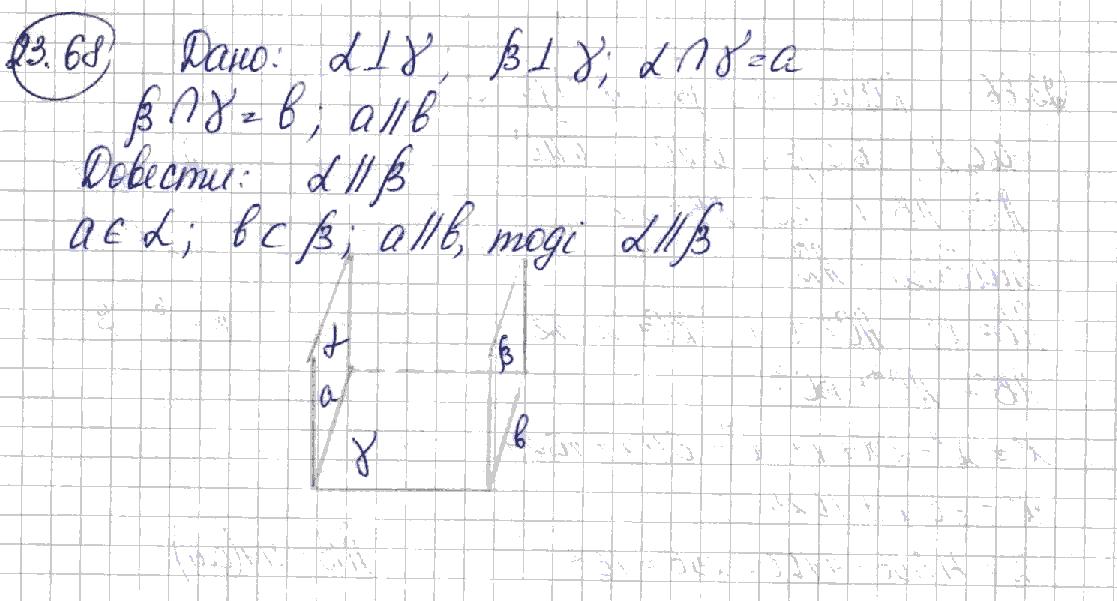 23.68, Дано: α⊥γ; β⊥γ; α∩γ=a
β∩γ=b; a∥b
Довести: α∥β
a∈α; b⊂β; a∥b, тоді α∥β
α
β
a
b
γ